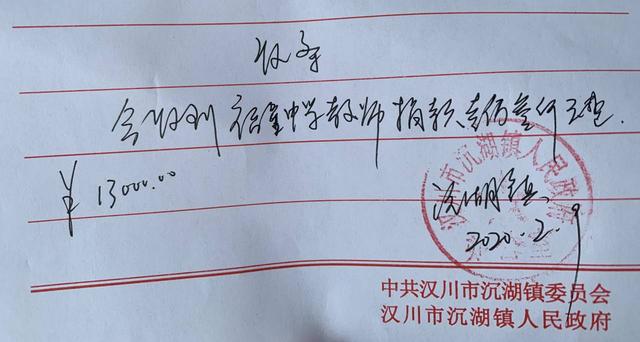 收条
今收到 福星中学教师捐款壹万叁仟元整.
¥ 13000.00
汉川市沉湖镇人民政府
沉湖镇
2020.2.9
中共汉川市沉湖镇委员会
汉川市沉湖镇人民政府